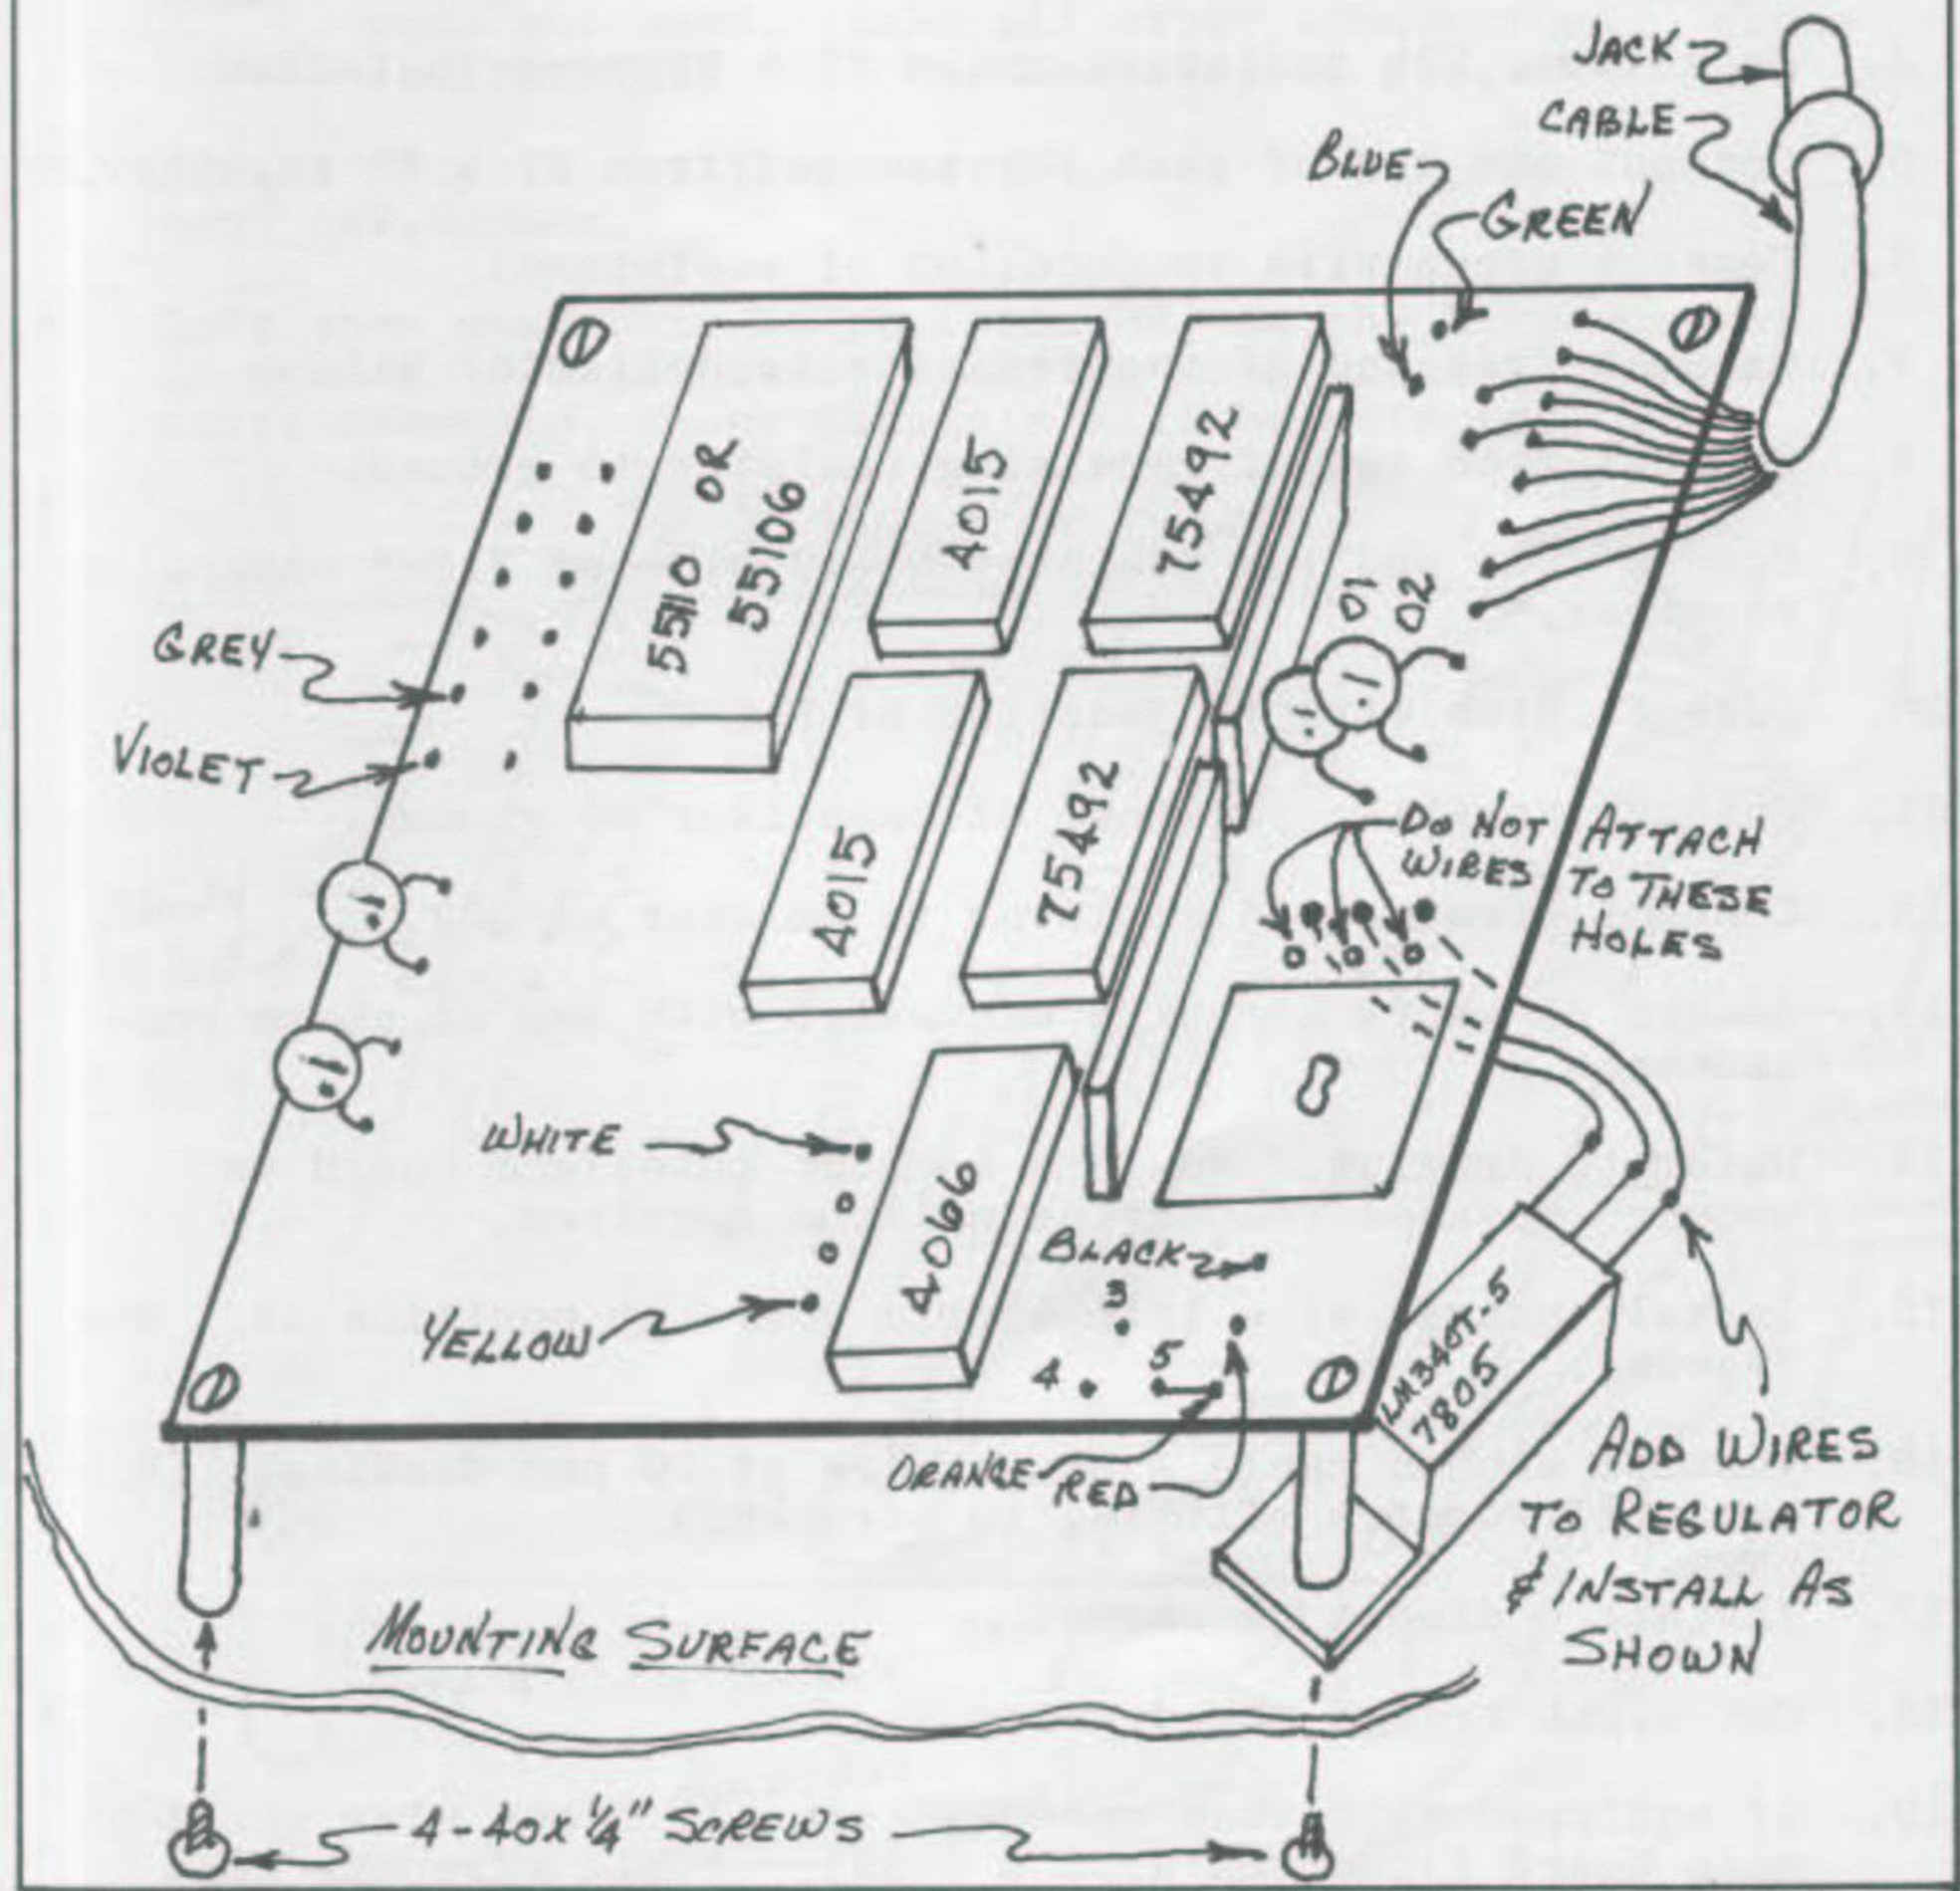 JACK
CABLE
BLUE
GREEN
5510 OR
55106
4015
75492
01
02
GREY
VIOLET
4015
75492
DO NOT ATTACH
WIRES TO THESE
HOLES
WHITE
YELLOW
4066
BLACK
3
4
5
ORANGE
RED
LM340T-5
7805
ADD WIRES
TO REGULATOR
& INSTALL AS
SHOWN
MOUNTING SURFACE
4-40x 1/4" SCREWS